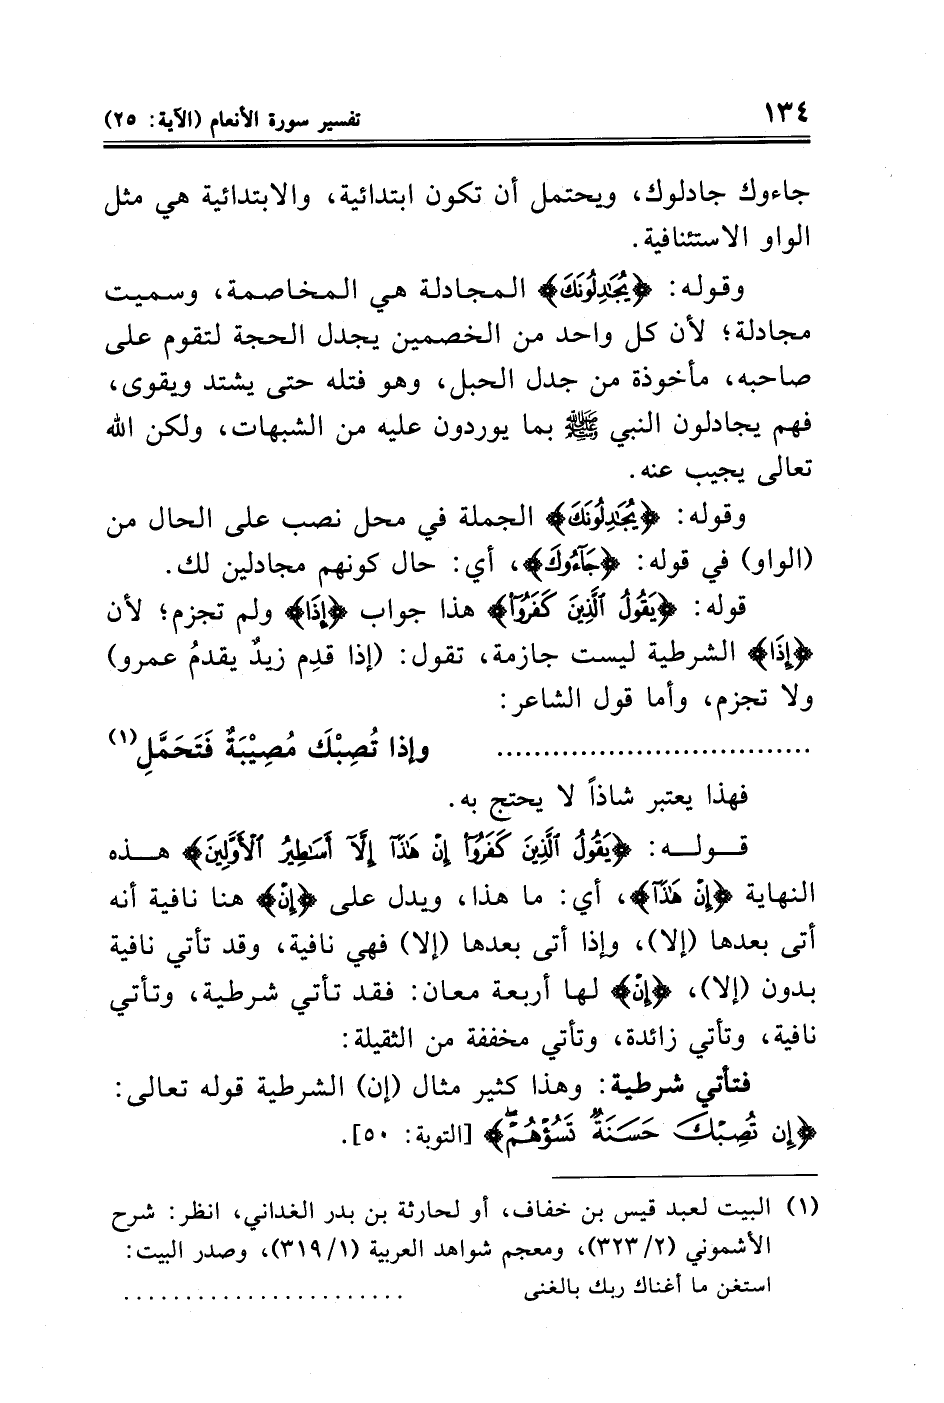 ١٣٤ تفسير سورة الأنعام (الآية: ٢٥)
جاءوك جادلوك، ويحتمل أن تكون ابتدائية، والابتدائية هي مثل
الواو الاستئنافية.
وقوله: ﴿يُجَٰدِلُونَكَ﴾ المجادلة هي المخاصمة، وسميت
مجادلة؛ لأن كل واحد من الخصمين يجدل الحجة لتقوم على
صاحبه، مأخوذة من جدل الحبل، وهو فتله حتى يشتد ويقوى،
فهم يجادلون النبي ﷺ بما يوردون عليه من الشبهات، ولكن الله
تعالى يجيب عنه.
وقوله: ﴿يُجَٰدِلُونَكَ﴾ الجملة في محل نصب على الحال من
(الواو) في قوله: ﴿جَآءُوكَ﴾، أي: حال كونهم مجادلين لك.
قوله: ﴿يَقُولُ ٱلَّذِينَ كَفَرُوٓا۟﴾ هذا جواب ﴿إِذَا﴾ ولم تجزم؛ لأن
﴿إِذَا﴾ الشرطية ليست جازمة، تقول: (إذا قدِم زيدٌ يقدمُ عمرو)
ولا تجزم، وأما قول الشاعر:
................................ وإذا تُصِبْكَ مُصِيْبَةٌ فَتَحَمَّلِ(١)
فهذا يعتبر شاذاً لا يحتج به.
قوله: ﴿يَقُولُ ٱلَّذِينَ كَفَرُوٓا۟ إِنْ هَٰذَآ إِلَّآ أَسَٰطِيرُ ٱلْأَوَّلِينَ﴾ هذه
النهاية ﴿إِنْ هَٰذَآ﴾، أي: ما هذا، ويدل على ﴿إِنْ﴾ هنا نافية أنه
أتى بعدها (إلا)، وإذا أتى بعدها (إلا) فهي نافية، وقد تأتي نافية
بدون (إلا)، ﴿إِنْ﴾ لها أربعة معان: فقد تأتي شرطية، وتأتي
نافية، وتأتي زائدة، وتأتي مخففة من الثقيلة:
فتأتي شرطية: وهذا كثير مثال (إن) الشرطية قوله تعالى:
﴿إِن تُصِبْكَ حَسَنَةٌ تَسُؤْهُمْ ۖ﴾ [التوبة: ٥٠].
(١) البيت لعبد قيس بن خفاف، أو لحارثة بن بدر الغداني، انظر: شرح
الأشموني (٣٢٣/٢)، ومعجم شواهد العربية (٣١٩/١)، وصدر البيت:
استغن ما أغناك ربك بالغنى .......................